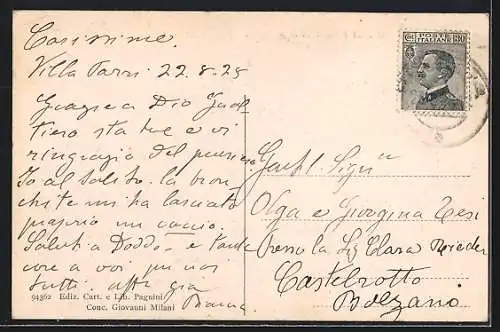 Carissime.
Villa Parri 22-8-25
Grazie a Dio Gual
tiero sta bene e vi
ringrazio del pensiero
Io al solito. la bron
chite mi ha lasciato
proprio un
Saluti a Doddo e tante
cose a voi. per noi
tutti. aff
Bianca
94362 Ediz. Cart. e Lib. Pagnini
Conc. Giovanni Milani
POSTE
ITALIANE
Cent. 30
Gentil. Signe
Olga e Giorgina Tesi
presso la Sig Clara
Castelrotto
Bolzano